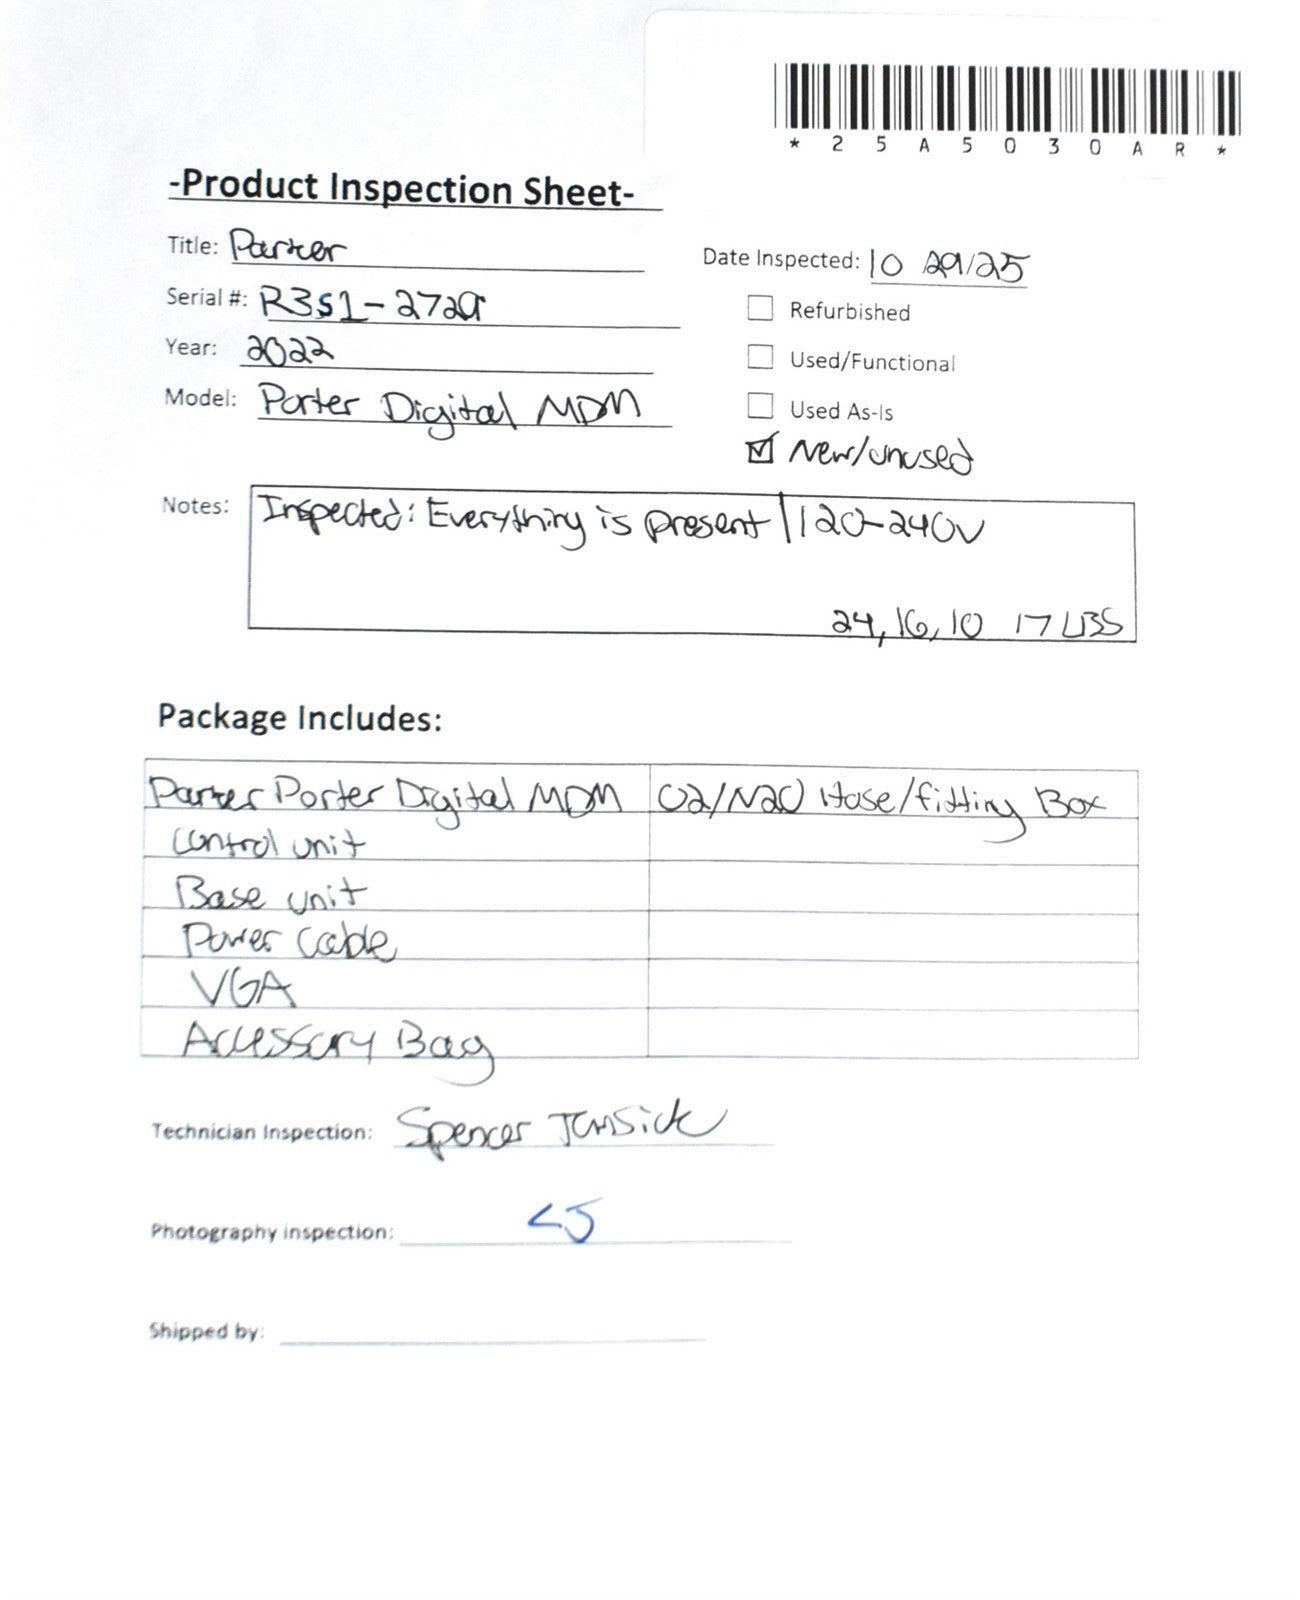 *25A5030AR*
-Product Inspection Sheet-
Title: Parker
Date Inspected: 10 29/25
Serial #: R3S1-2729
Refurbished
Year: 2022
Used/Functional
Model: Porter Digital MDM
Used As-Is
New/unused
Notes: Inspected: Everything is present | 120-240V
24, 16, 10 17 LBS
Package Includes:
Parker Porter Digital MDM O2/N2O Hose/fitting Box
Control unit
Base unit
Power Cable
VGA
Accessory Bag
Technician Inspection: Spencer
Photography inspection:
Shipped by: